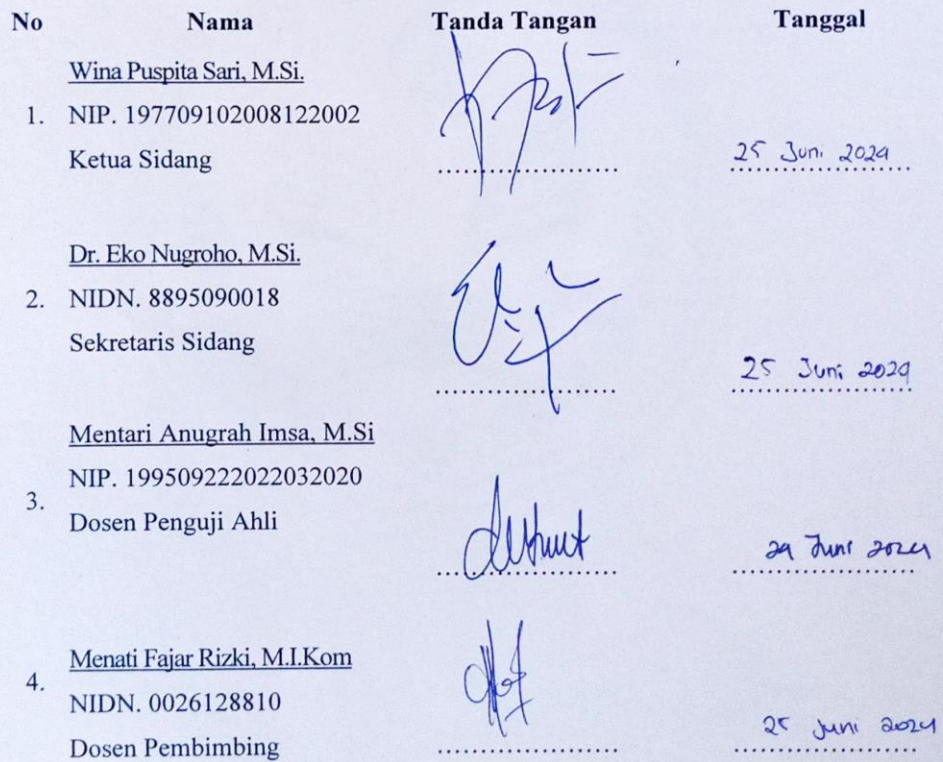 No Nama Tanda Tangan Tanggal
Wina Puspita Sari, M.Si.
1. NIP. 197709102008122002
Ketua Sidang
25 Juni 2024
Dr. Eko Nugroho, M.Si.
2. NIDN. 8895090018
Sekretaris Sidang
25 Juni 2024
Mentari Anugrah Imsa, M.Si
NIP. 199509222022032020
3.
Dosen Penguji Ahli
Juni 2024
Menati Fajar Rizki, M.I.Kom
4.
NIDN. 0026128810
25 Juni 2024
Dosen Pembimbing